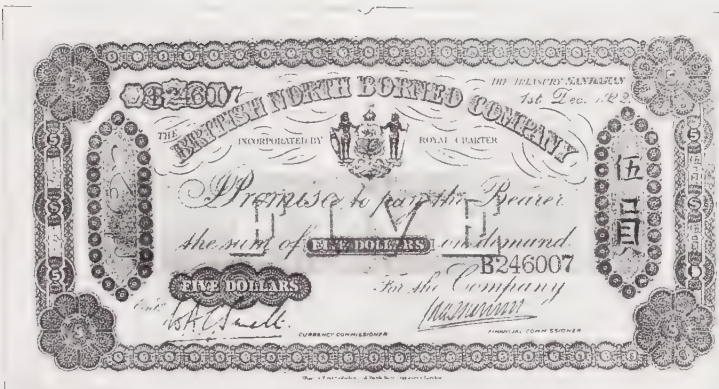 B246007
THE TREASURY SANDAKAN
1st Dec. 1922
THE
BRITISH NORTH BORNEO COMPANY
INCORPORATED BY ROYAL CHARTER
I Promise to pay the Bearer
the sum of FIVE DOLLARS on demand
FIVE
B246007
FIVE DOLLARS
For the Company
CURRENCY COMMISSIONER
FINANCIAL COMMISSIONER
伍員